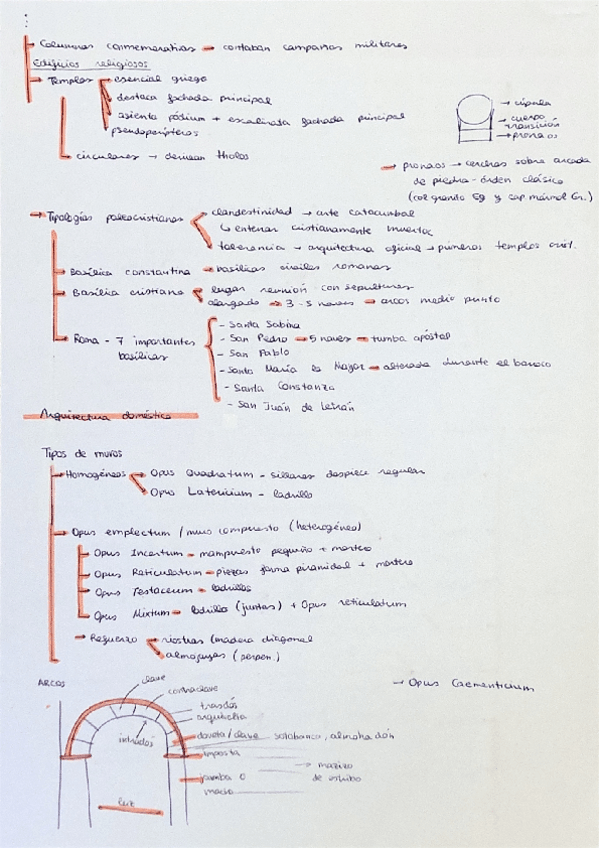 Columnas conmemorativas → contaban campañas militares
Edificios religiosos
→ Templos
esencial griego
destaca fachada principal
asienta pódium + escalinata fachada principal
pseudoperípteros
circulares → derivan tholos
→ cúpula
→ cuerpo transición
→ pronaos
→ pronaos → cerchas sobre arcada
de piedra - orden clásico
(col granito Eg y cap mármol Gr.)
→ Tipologías paleocristianas
clandestinidad → arte catacumbal
↳ enterrar cristianamente muertos
tolerancia → arquitectura oficial → primeros templos crist.
Basílica constantina → basílicas civiles romanas
Basílica cristiana
lugar reunión con sepulturas
alargado → 3-5 naves → arcos medio punto
Roma - 7 importantes
basílicas
- Santa Sabina
- San Pedro → 5 naves → tumba apóstol
- San Pablo
- Santa María la Mayor → alterada durante el barroco
- Santa Constanza
- San Juan de Letrán
Arquitectura doméstica
Tipos de muros
→ Homogéneos
Opus Quadratum - sillares despiece regular
Opus Latericium - ladrillo
→ Opus emplectum / muro compuesto (heterogéneo)
Opus Incertum - mampuesto pequeño + mortero
Opus Reticulatum - piezas forma piramidal + mortero
Opus Testaceum - ladrillos
Opus Mixtum - ladrillo (juntas) + Opus reticulatum
→ Refuerzo
riostras (madera diagonal
almojayas (serpen.)
→ Opus Caementicium
ARCOS
clave
contraclave
trasdós
arquivolta
intradós
dovela/clave
sotabanco, almohadón
imposta
→ macizo
jamba o
macho
luz